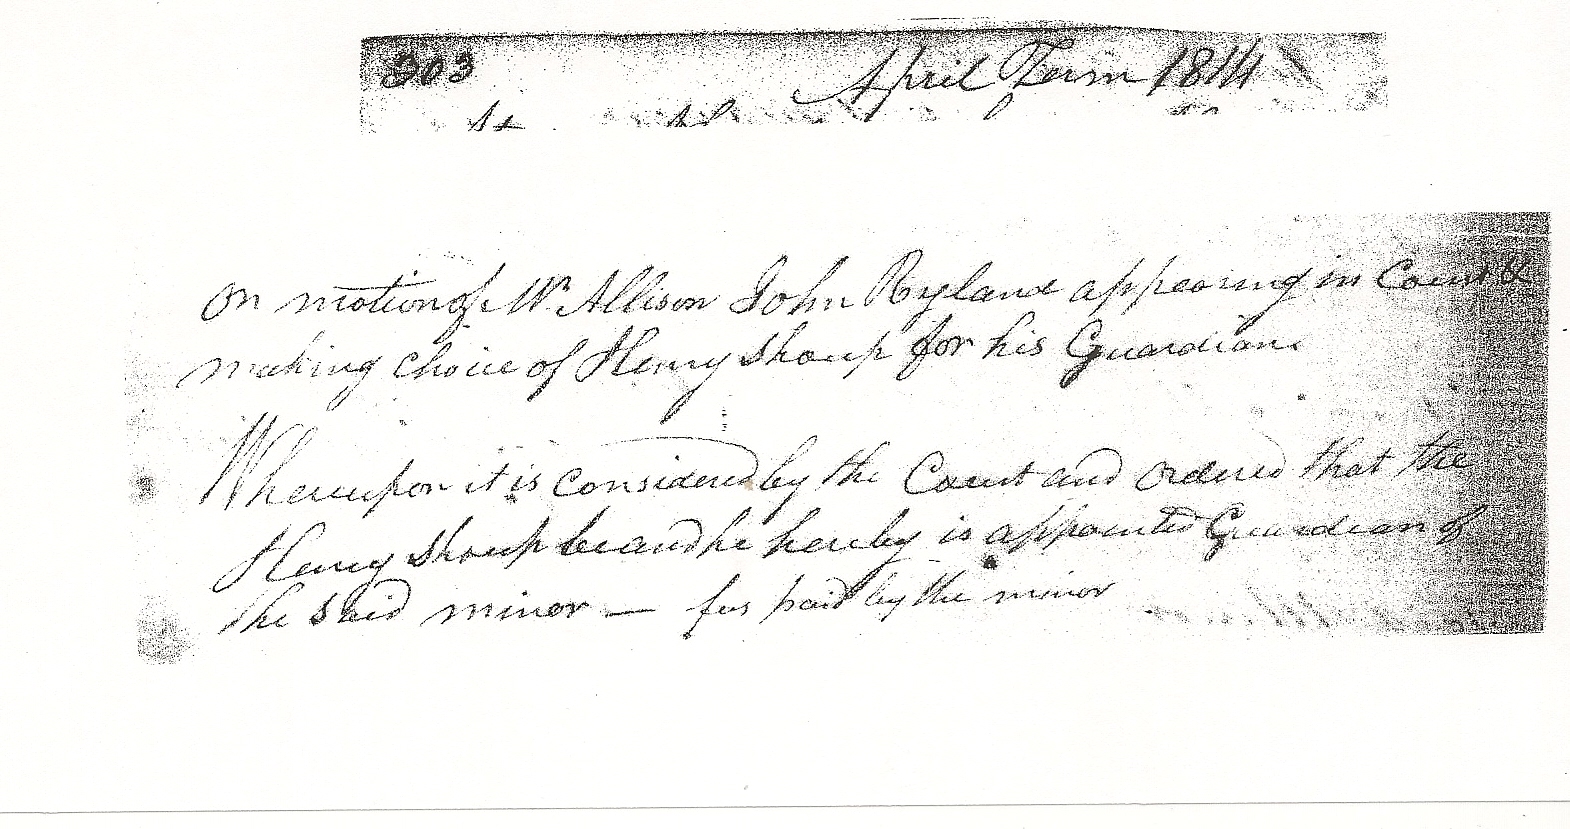 303 April Term 1814
On motion of Mr Allison John Ryland appearing in Court &
making choice of Henry Shoup for his Guardian
Whereupon it is considered by the Court and ordered that the
Henry Shoup be and he hereby is appointed Guardian of
the said minor — fees paid by the minor